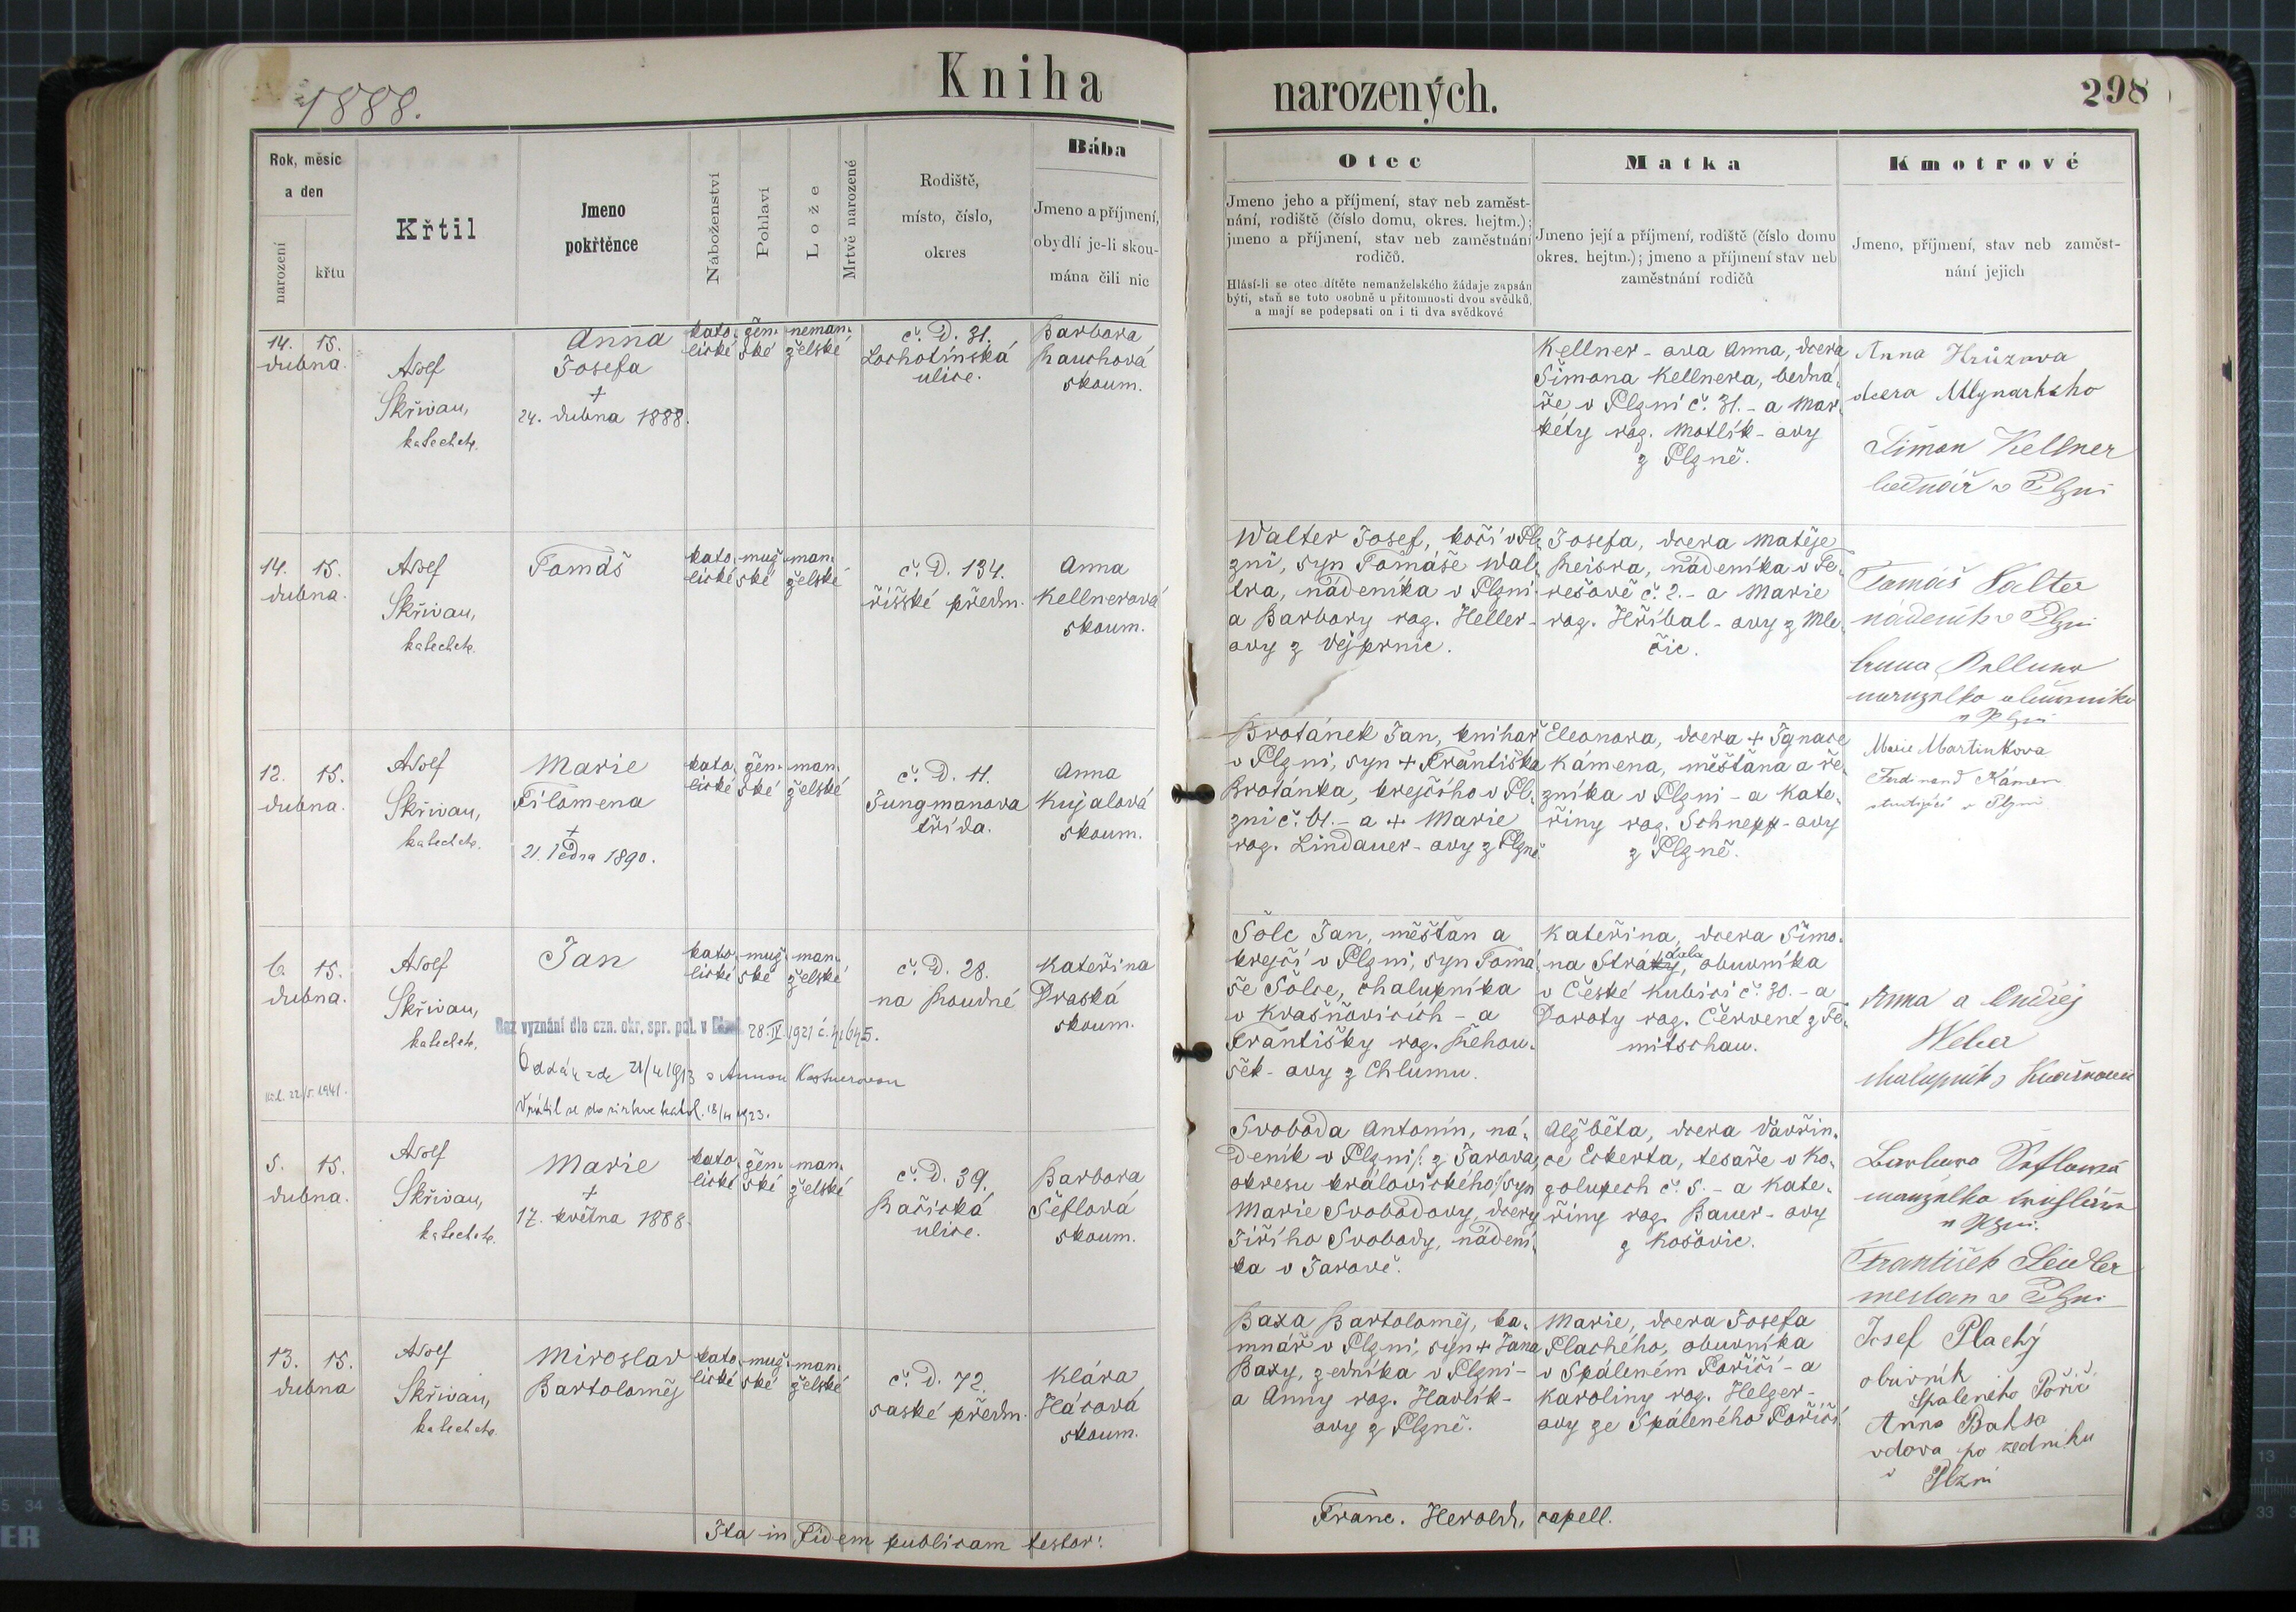 1888.
Kniha
narozených.
298
Rok, měsíc
a den
narození
křtu
Křtil
Jmeno
pokřtěnce
Náboženství
Pohlaví
Lože
Mrtvě narozené
Rodiště,
místo, číslo,
okres
Bába
Jmeno a příjmení,
obydlí je-li skou-
mána čili nic
Otec
Jmeno jeho a příjmení, stav neb zaměst-
nání, rodiště (číslo domu, okres. hejtm.);
jmeno a příjmení, stav neb zaměstnání
rodičů.
Hlásí-li se otec dítěte nemanželského žádaje zapsán
býti, staň se toto osobně u přítomnosti dvou svědků,
a mají se podepsati on i ti dva svědkové
Matka
Jmeno její a příjmení, rodiště (číslo domu
okres. hejtm.); jmeno a příjmení stav neb
zaměstnání rodičů
Kmotrové
Jmeno, příjmení, stav neb zaměst-
nání jejich
14. 15.
dubna.
Adolf
Skřivan,
katecheta.
Anna
Josefa
+
24. dubna 1888.
kato-
lické
žen-
ské
neman-
želské
č. D. 31.
Lochotínská
ulice.
Barbora
Rauchová
skoum.
Kellner-ova Anna, dcera
Šimona Kellnera, bedná-
ře, v Plzni č. 31. - a Mar-
kéty roz. Motlík-ovy
z Plzně.
Anna Hrůzova
dcera Mlynarskeho
Šimon Kellner
bednář v Plzni
14. 15.
dubna.
Adolf
Skřivan,
katecheta.
Tomáš
kato-
lické
muž-
ské
man-
želské
č. D. 134.
říšské předm.
Anna
Kellnerová
skoum.
Walter Josef, kočí v Pl-
zni, syn Tomáše Wal-
tra, nádeníka v Plzni
a Barbory roz. Heller-
ovy z Vejprnic.
Josefa, dcera Matěje
Reisra, nádeníka v Te-
rešově č. 2. - a Marie
roz. Hříbal-ovy z Mle-
čic.
Tomáš Valter
nádeník v Plzni
v Plzni
12. 15.
dubna.
Adolf
Skřivan,
katecheta.
Marie
Filomena
+
21. ledna 1890.
kato-
lické
žen-
ské
man-
želské
č. D. 11.
Jungmanova
třída.
Anna
Kujalová
skoum.
Brotánek Jan, knihař
v Plzni, syn + Františka
Brotánka, krejčího v Pl-
zni č. 61. - a + Marie
roz. Lindauer-ovy z Plzně.
Eleonora, dcera + Ignace
Kámena, měšťana a ře-
zníka v Plzni - a Kate-
řiny roz. Schnepp-ovy
z Plzně.
Marie Martinkova
Ferdinand Kámen
studující v Plzni
6. 15.
dubna.
Adolf
Skřivan,
katecheta.
Jan
kato-
lické
muž-
ské
man-
želské
č. D. 28.
na Roudné
Kateřina
Draská
skoum.
Bez vyznání dle ozn. okr. spr. pol. v 28.IV 1921 č.
Oddán zde 21/4 1913 s Annou Kastnerovou
Vrátil se do církve katol. 18/4 1923.
22/5. 1941.
Šolc Jan, měšťan a
krejčí v Plzni, syn Tomá-
še Šolce, chalupníka
v Kvašňovicích - a
Františky roz. Řehou-
šek-ovy z Chlumu.
Kateřina, dcera Šimo-
na Straky, obuvníka
v České Kubici č. 30. - a
Doroty roz. Červené z Fe-
mitschau.
Anna a Ondřej
Weber
5. 15.
dubna.
Adolf
Skřivan,
katecheta.
Marie
+
17. května 1888.
kato-
lické
žen-
ské
man-
želské
č. D. 39.
Račická
ulice.
Barbora
Šeflová
skoum.
Svoboda Antonín, ná-
deník v Plzni /: z Jarova,
okresu královického :/ syn
Marie Svobodovy, dcery
Jiřího Svobody, nádení-
ka v Jarově.
Alžběta, dcera Vavřin-
ce Eckerta, tesaře v Ko-
zolupech č. 5. - a Kate-
řiny roz. Bauer-ovy
z Košovic.
Barbora Šeflová
manželka
v Plzni.
František Seidler
mesťan v Plzni
13. 15.
dubna
Adolf
Skřivan,
katecheta.
Miroslav
Bartoloměj
kato-
lické
muž-
ské
man-
želské
č. D. 72.
saské předm.
Klára
Hácová
skoum.
Baxa Bartoloměj, ka-
mnář v Plzni, syn + Jana
Baxy, zedníka v Plzni -
a Anny roz. Havlík-
ovy z Plzně.
Marie, dcera Josefa
Plachého, obuvníka
v Spáleném Poříčí - a
Karoliny roz. Helzer-
ovy ze Spáleného Poříčí.
Josef Plachý
obuvník
Spaleného Poříč
Anna Bahsa
vdova po zedniku
v Plzni
Ita in Fidem publicam testor:
Franc. Herold, capell.